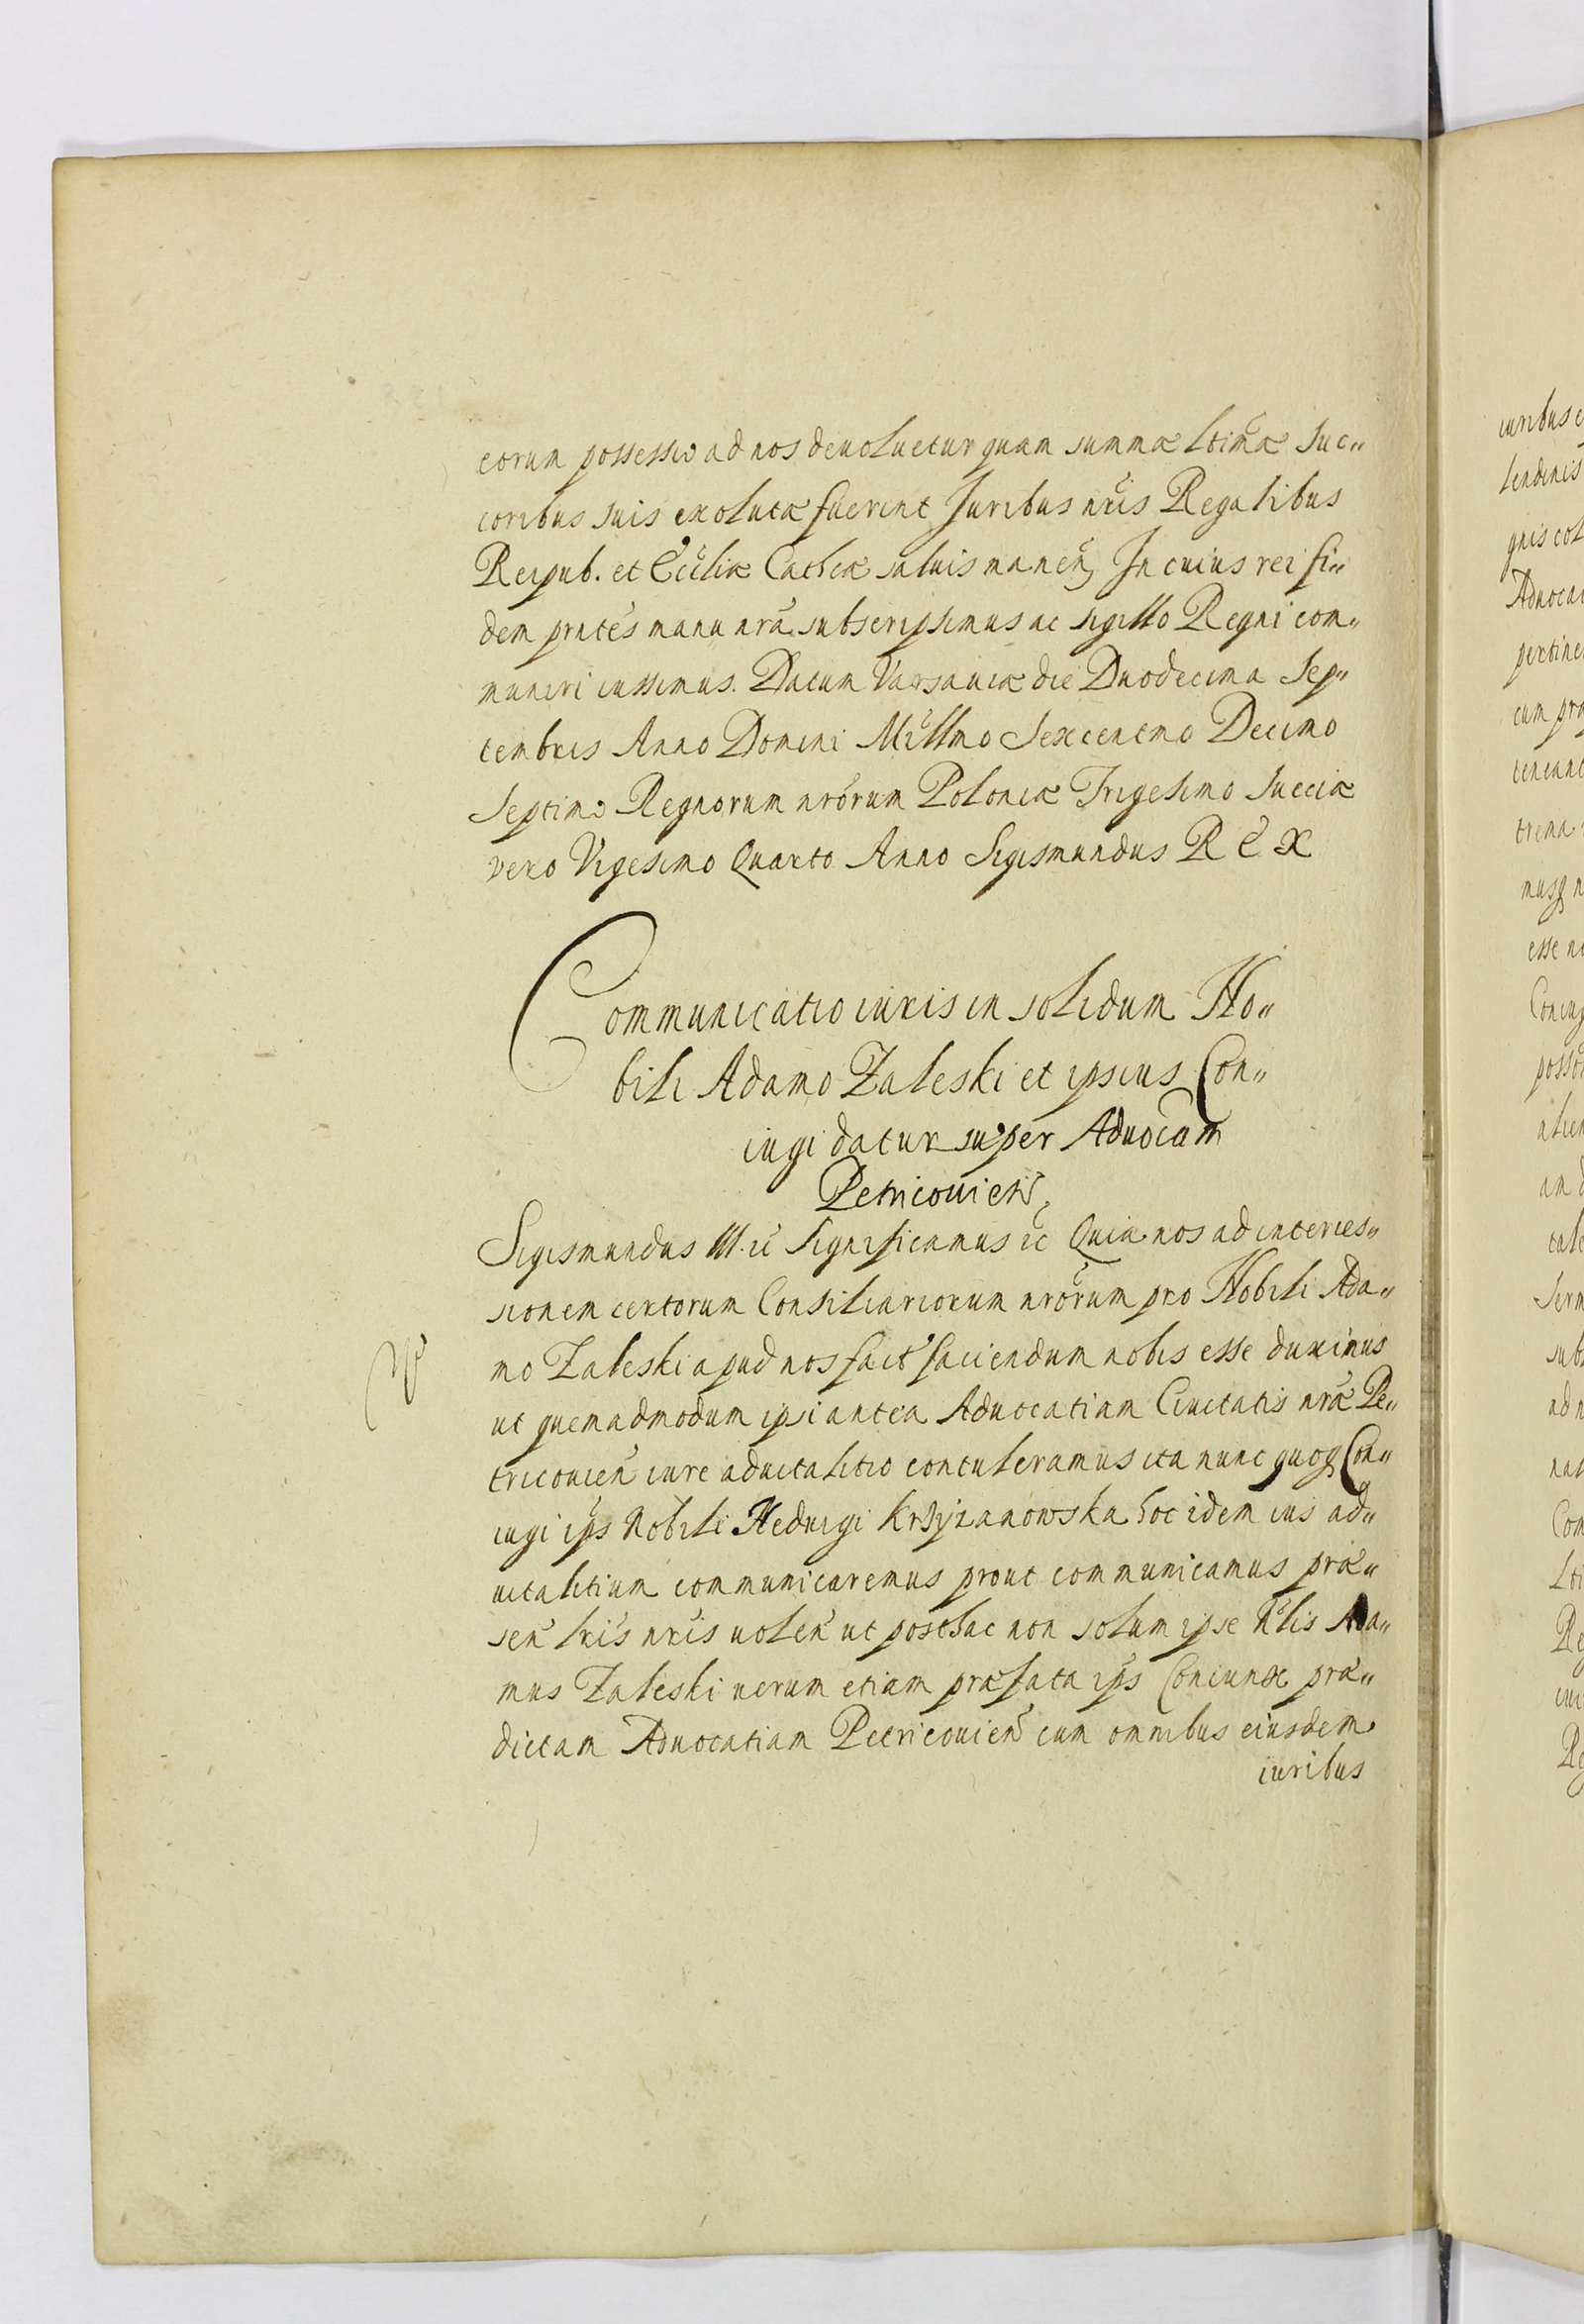 eorum possessio ad nos deuoluetur quam summæ ltimæ suc„
coribus suis exolutæ fuerint Juribus nris Regalibus
Reipub. et Eccliæ Cathcæ saluis manen, In cuius rei fi„
dem pntes manu nra subscripsimus ac sigillo Regni com„
muniri iussimus. Datum Varsauiæ die Duodecima Sep„
tembris Anno Domini Millmo Sexcentmo Decimo
Septimo Regnorum nrorum Poloniæ Trigesimo Sueciæ
vero Vigesimo Quarto Anno Sigismundus R E X
Communicatio iuris in solidum No„
bili Adamo Zaleski et ipsius Con„
iugi datur super Aduocam
Petricouien
Sigismundus III. ec Significamus ec Quia nos ad interces„
sionem certorum Consiliariorum nrorum pro Nobili Ada„
mo Zaleski apud nos fact faciendum nobis esse duximus
ut quemadmodum ipsi antea Aduocatiam Ciuitatis nræ Pe„
tricouien iure aduitalitio contuleramus ita nunc quoq Con„
iugi ips Nobili Heduigi Krzyzanowska hoc idem ius ad„
uitalitium communicaremus prout communicamus præ„
sen lris nris uolen ut posthac non solum ipse Nlis Ada„
mus Zaleski uerum etiam præfata ips Coniunx præ„
dictam Aduocatiam Petricouien cum omnibus eiusdem
iuribus
iuribus